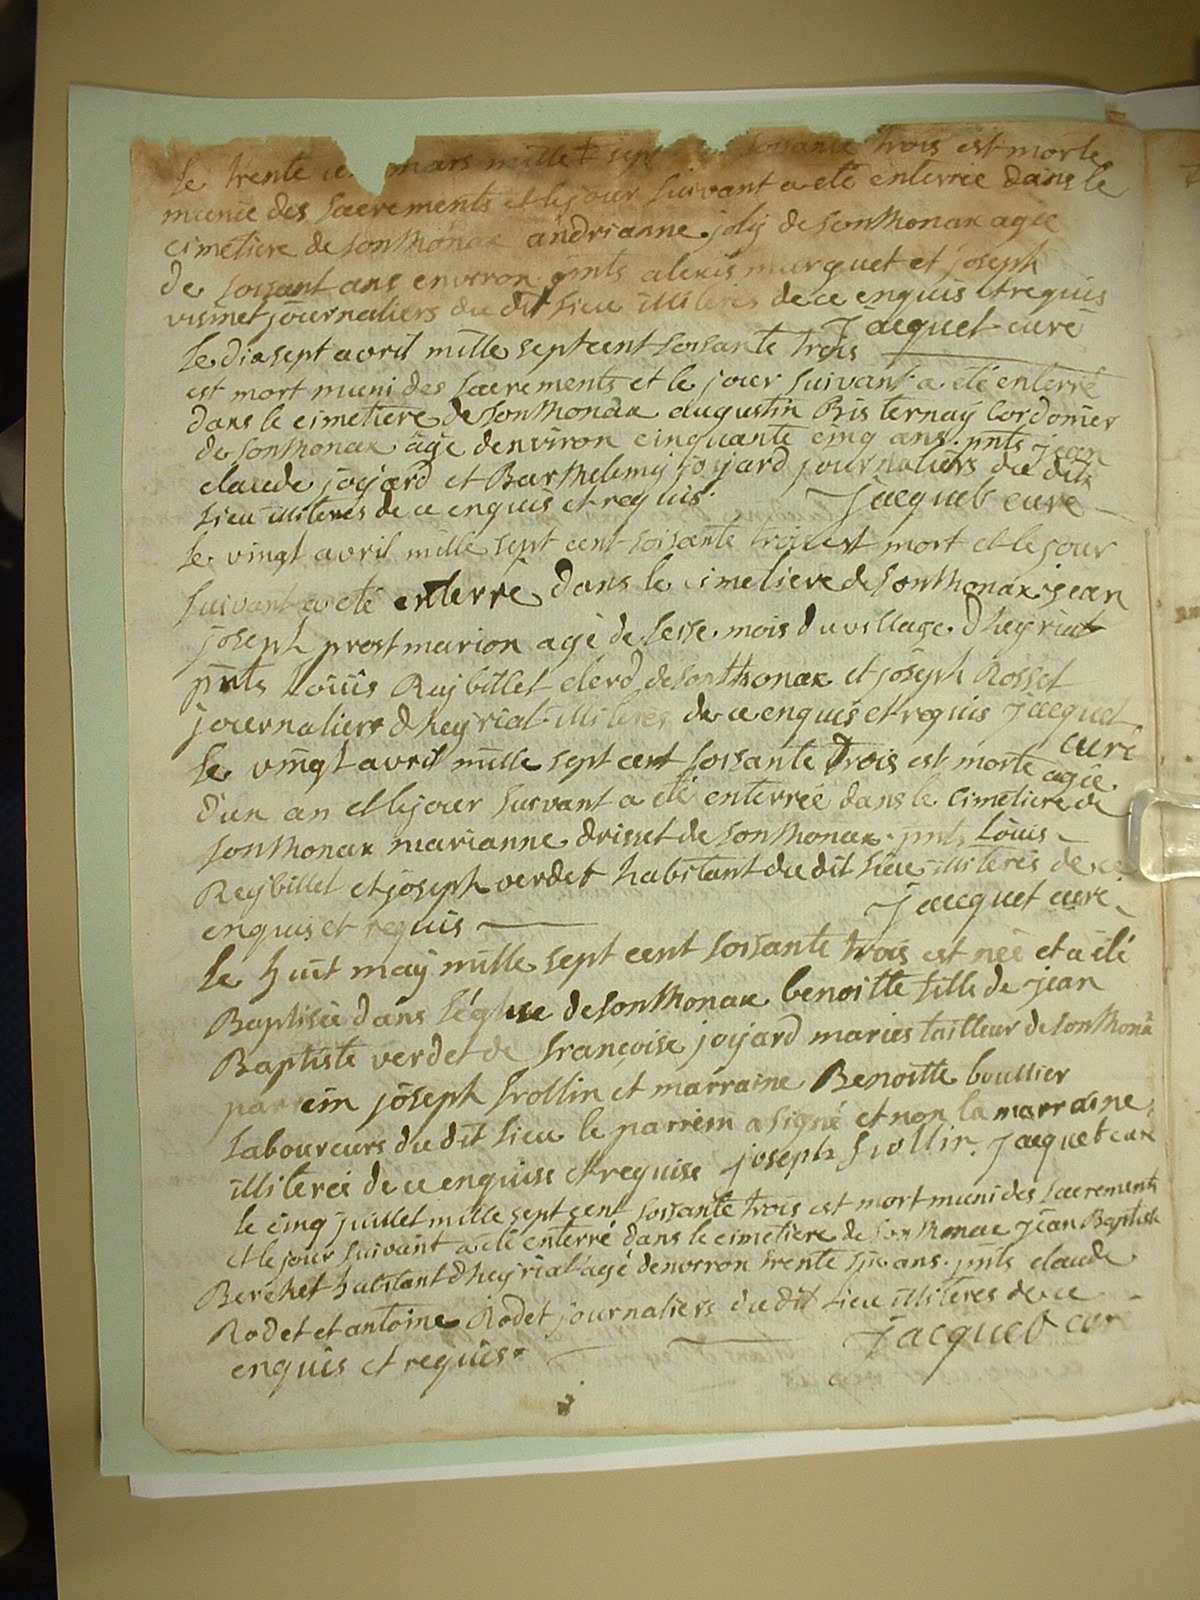 Le trente mars mille sept soisante trois est morte
munie des sacrements et le jour suivant a eté enterrée dans le
cimetiere de sonthonax andrianne joly de sonthonax agée
de soisant ans environ pnts alexis murguet et joseph
vismet journaliers du dit lieu illiterés de ce enquis et requis
Jacquet curé
Le dix sept avril mille sept cent soisante trois
est mort muni des sacrements et le jour suivant a eté enterré
dans le cimetiere de sonthonax augustin Bisternay Cordonier
de sonthonax âgé denviron cinquante cinq ans. pnts jean
claude joyard et Barthelemy joyard journaliers du dit
lieu illiterés de ce enquis et requis. Jacquet curé
Le vingt avril mille sept cent soisante trois est mort et le jour
suivant a eté enterré dans le cimetiere de Sonthonax jean
joseph prost marion agé de sesse mois du village d'heyriat
pnts Louis Reybillet clerd de sonthonax et joseph Rosset
journaliers d heyriat illiterés de ce enquis et requis Jacquet
curé
Le vingt avril mille sept cent soisante trois est morte agée
d'un an et le jour suivant a eté enterrée dans le Cimetiere de
sonthonax marianne drisset de sonthonax. pnts Louis
Reybillet et joseph verdet habitant du dit lieu illiterés de ce
enquis et requis Jacquet curé
Le huit may mille sept cent soisante trois est née et a été
Baptisée dans l'églse de sonthonax benoitte fille de jean
Baptiste verdet de françoise joyard mariés tailleur de sonthona
parrein joseph frollin et marraine Benoitte boullier
Laboureurs du dit Lieu le parrein a signé et non la marraine
illiterée de ce enquise et requise joseph frollin. Jacquet curé
le cinq juillet mille sept sent soisante trois est mort muni des sacrements
et le jour suivant a eté enterré dans le cimetiere de sonthonax jean Baptiste
Berchet habitant d'heyriat agé denviron trente six ans. pnts claude
Rodet et antoine Rodet journaliers du dit lieu illiterés de ce
enquis et requis. Jacquet cur